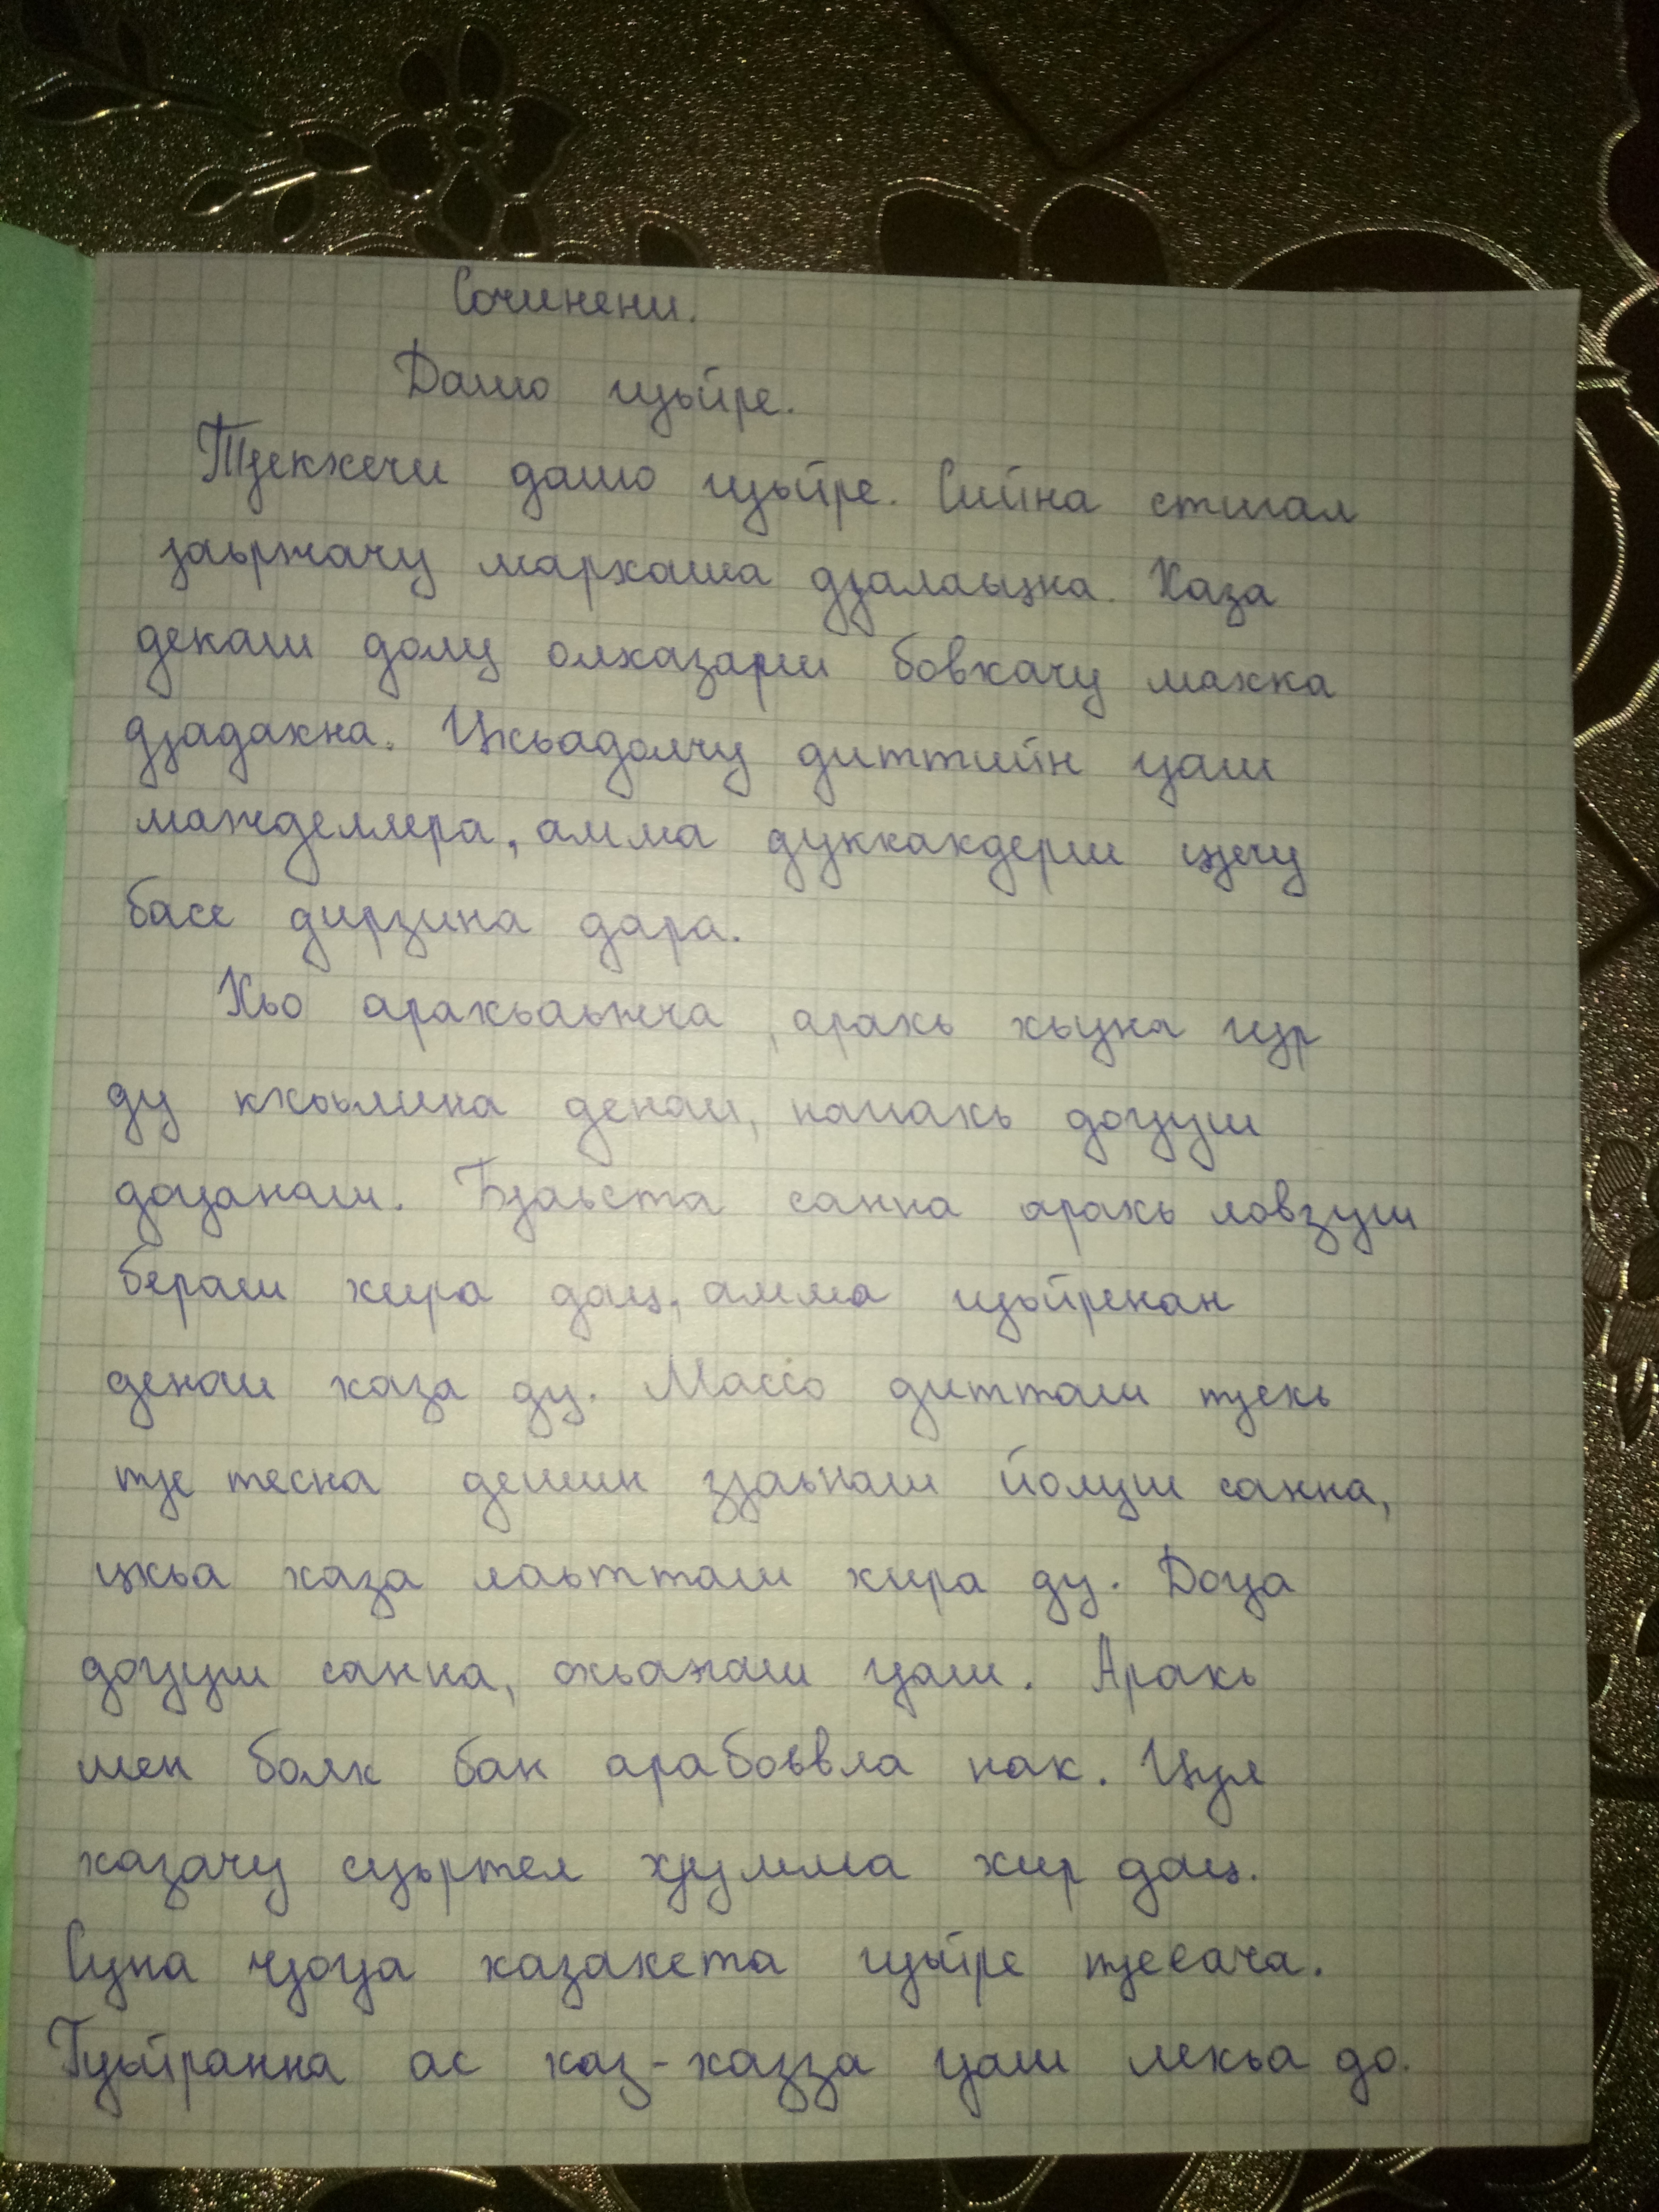 Сочинени.
Дашо гуьйре.
ТӀекхечи дашо гуьйре. Сийна стигал
Ӏаьржачу мархаша дӀалаьцна. Хаза
декаш долу олхазарш бовхачу махка
дӀадахна. Цкъадолчу диттийн гӀаш
можделлера, амма дуккхакдерш цӀечу
басе дирзина дара.
Хьо арахьаьжча, арахь хьуна гур
ду кхоьлина денош, нагахь догӀуш
догӀанаш. БӀаьста санна арахь ловзуш
бераш хира дац, амма гуьйренан
денош хаза ду. Массо дитташ тӀехь
тӀе тесна дешин зӀаьнаш йолуш санна,
цкъа хаза лаьтташ хира ду. ДогӀа
догӀуш санна, охьаэгаш гӀаш. Арахь
шен болх бан арабоьвла нах. Цул
хазачу суьртел хӀумма хир дац.
Суна чӀогӀа хазахета гуьйре тӀеэача.
Гуьйранна ас хаз-хазза гӀаш лехьа до.